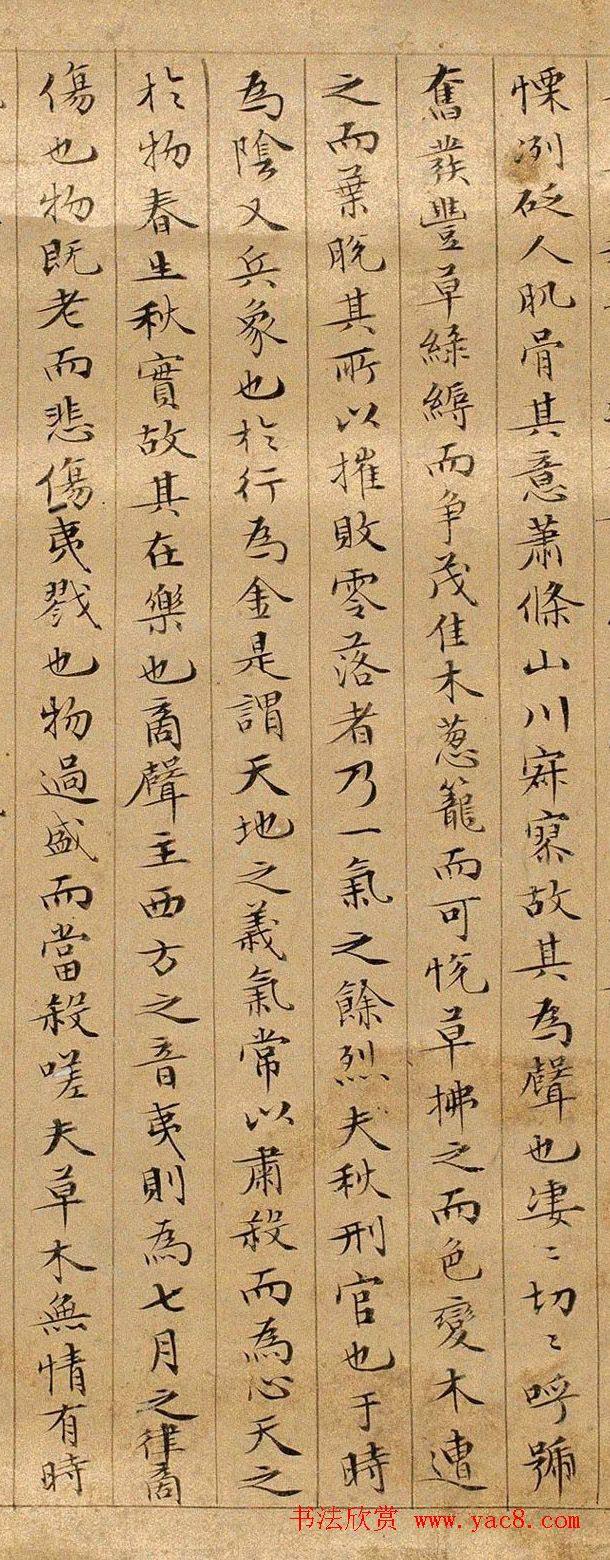 慄冽砭人肌骨其意蕭條山川寂寥故其為聲也淒〻切〻呼號
奮發豐草綠縟而争茂佳木蔥籠而可悅草拂之而色變木遭
之而葉脫其所以摧敗零落者乃一氣之餘烈夫秋刑官也于時
為陰又兵象也於行為金是謂天地之義氣常以肅殺而為心天之
於物春生秋實故其在樂也商聲主西方之音夷則為七月之律商
傷也物既老而悲傷夷戮也物過盛而當殺嗟夫草木無情有時
书法欣赏 www.yac8.com